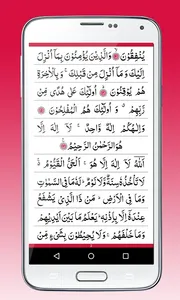 يُنْفِقُوْنَ ۝ وَالَّذِيْنَ يُؤْمِنُوْنَ بِمَآ اُنْزِلَ
اِلَيْكَ وَمَآ اُنْزِلَ مِنْ قَبْلِكَ ۚ وَبِالْاٰخِرَةِ
هُمْ يُوْقِنُوْنَ ۝ اُولٰٓئِكَ عَلٰى هُدًى مِّنْ
رَّبِّهِمْ ۗ وَاُولٰٓئِكَ هُمُ الْمُفْلِحُوْنَ ۝
وَاِلٰهُكُمْ اِلٰهٌ وَّاحِدٌ ۚ لَآ اِلٰهَ اِلَّا
هُوَ الرَّحْمٰنُ الرَّحِيْمُ ۝
اَللّٰهُ لَآ اِلٰهَ اِلَّا هُوَ ۚ اَلْحَيُّ الْقَيُّوْمُ ۚ
لَا تَاْخُذُهٗ سِنَةٌ وَّلَا نَوْمٌ ؕ لَهٗ مَا فِى السَّمٰوٰتِ
وَمَا فِى الْاَرْضِ ؕ مَنْ ذَا الَّذِيْ يَشْفَعُ
عِنْدَهٗٓ اِلَّا بِاِذْنِهٖ ؕ يَعْلَمُ مَا بَيْنَ اَيْدِيْهِمْ
وَمَا خَلْفَهُمْ ۚ وَلَا يُحِيْطُوْنَ بِشَيْءٍ مِّنْ